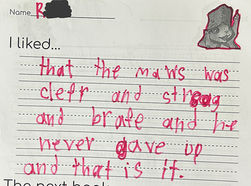 Name R
I liked...
that the maws was
cleft and strong
and brate and he
never gave up
and that is it.
The next book